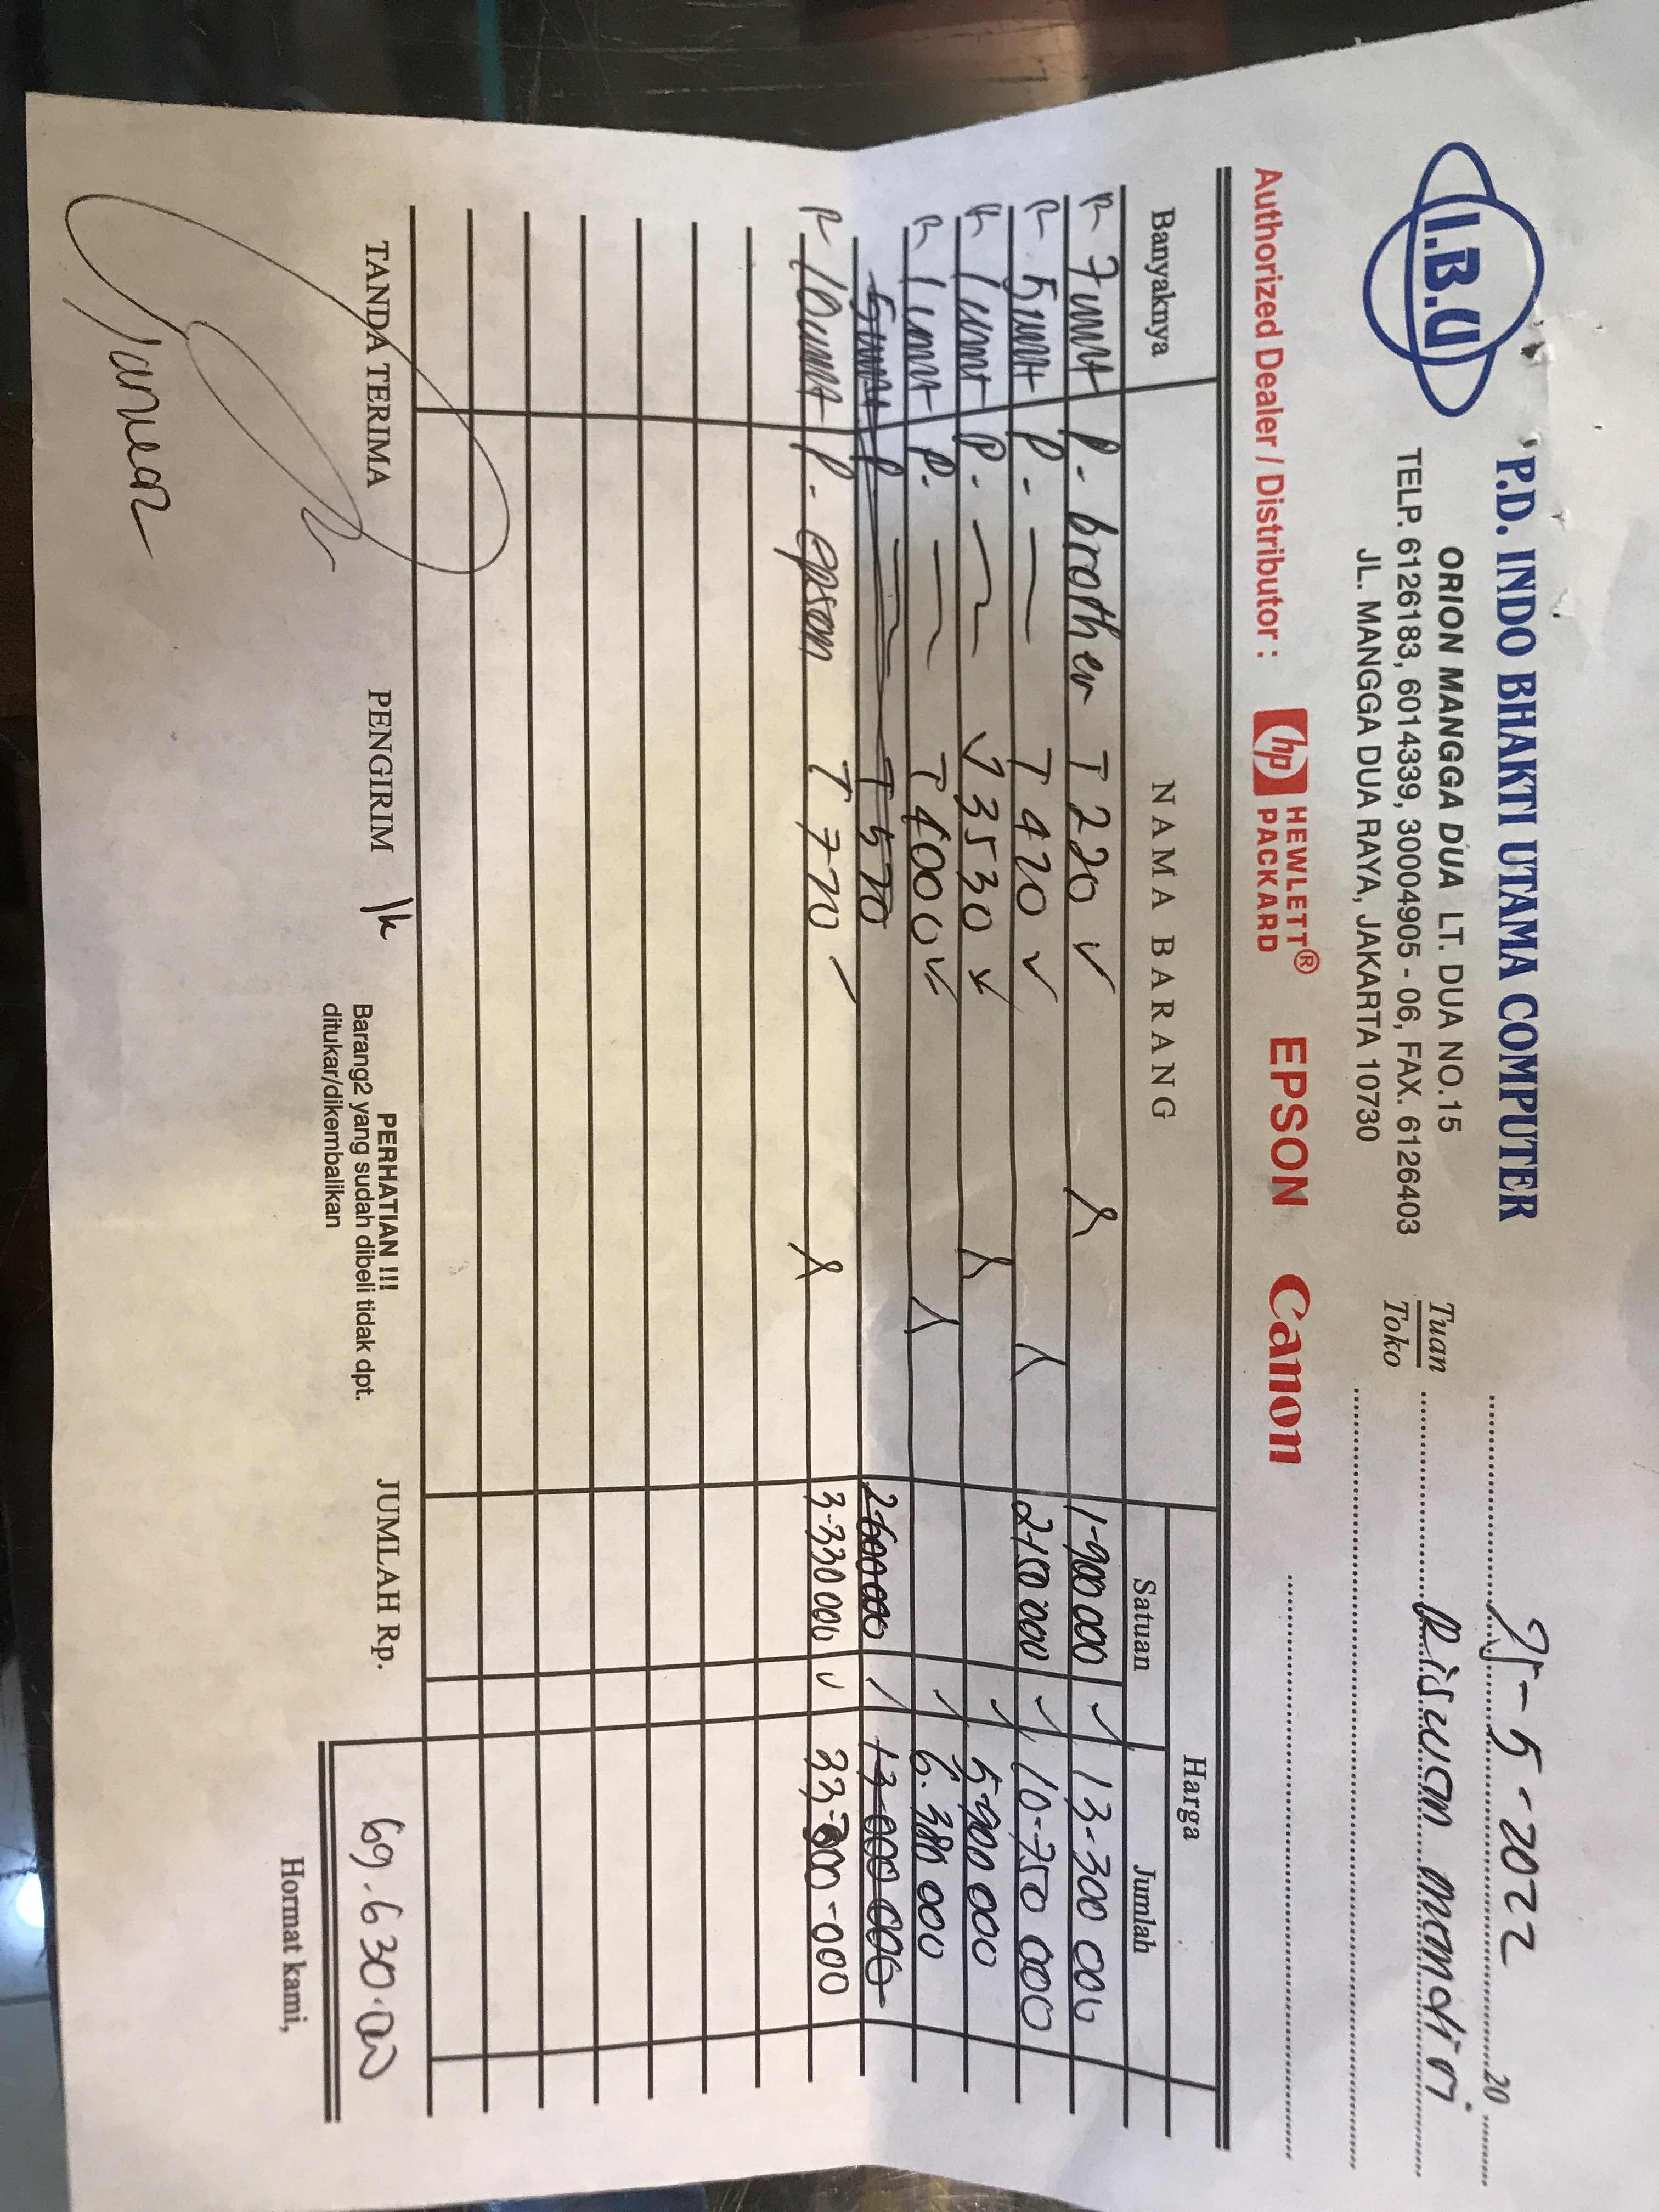 I.B.U
P.D. INDO BHAKTI UTAMA COMPUTER
ORION MANGGA DUA LT. DUA NO.15
TELP. 6126183, 6014339, 30004905 - 06, FAX. 6126403
JL. MANGGA DUA RAYA, JAKARTA 10730
Authorized Dealer / Distributor : hp HEWLETT® PACKARD EPSON Canon
25-5-2022 20
Tuan
Toko
mandiri
Banyaknya NAMA BARANG Harga
Satuan Jumlah
7 unit P. brother T 220 1-900 000 13-300 000
5 unit P. — T 420 2-150 000 10-750 000
1 unit P. — 3530 5-900 000
1 unit P. — T 4000 6.380 000
5 unit P — T 520 2-600 000 13-000 000
10 unit P. epson 3-330 000 33-300-000
TANDA TERIMA PENGIRIM
PERHATIAN !!!
Barang2 yang sudah dibeli tidak dpt.
ditukar/dikembalikan
JUMLAH Rp. 69.630.000
Hormat kami,